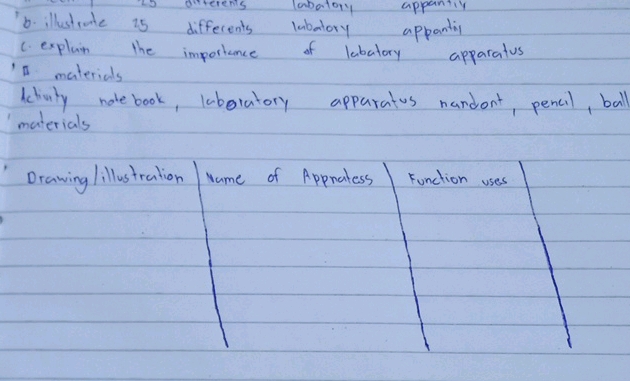 25 differents labatory appantiy
b. illustrate 25 differents labatory appantis
c. explain the importance of labatory apparatus
II materials
Activity notebook, laboratory apparatus handont, pencil, ball
materials
Drawing/illustration Name of Appratess Function uses